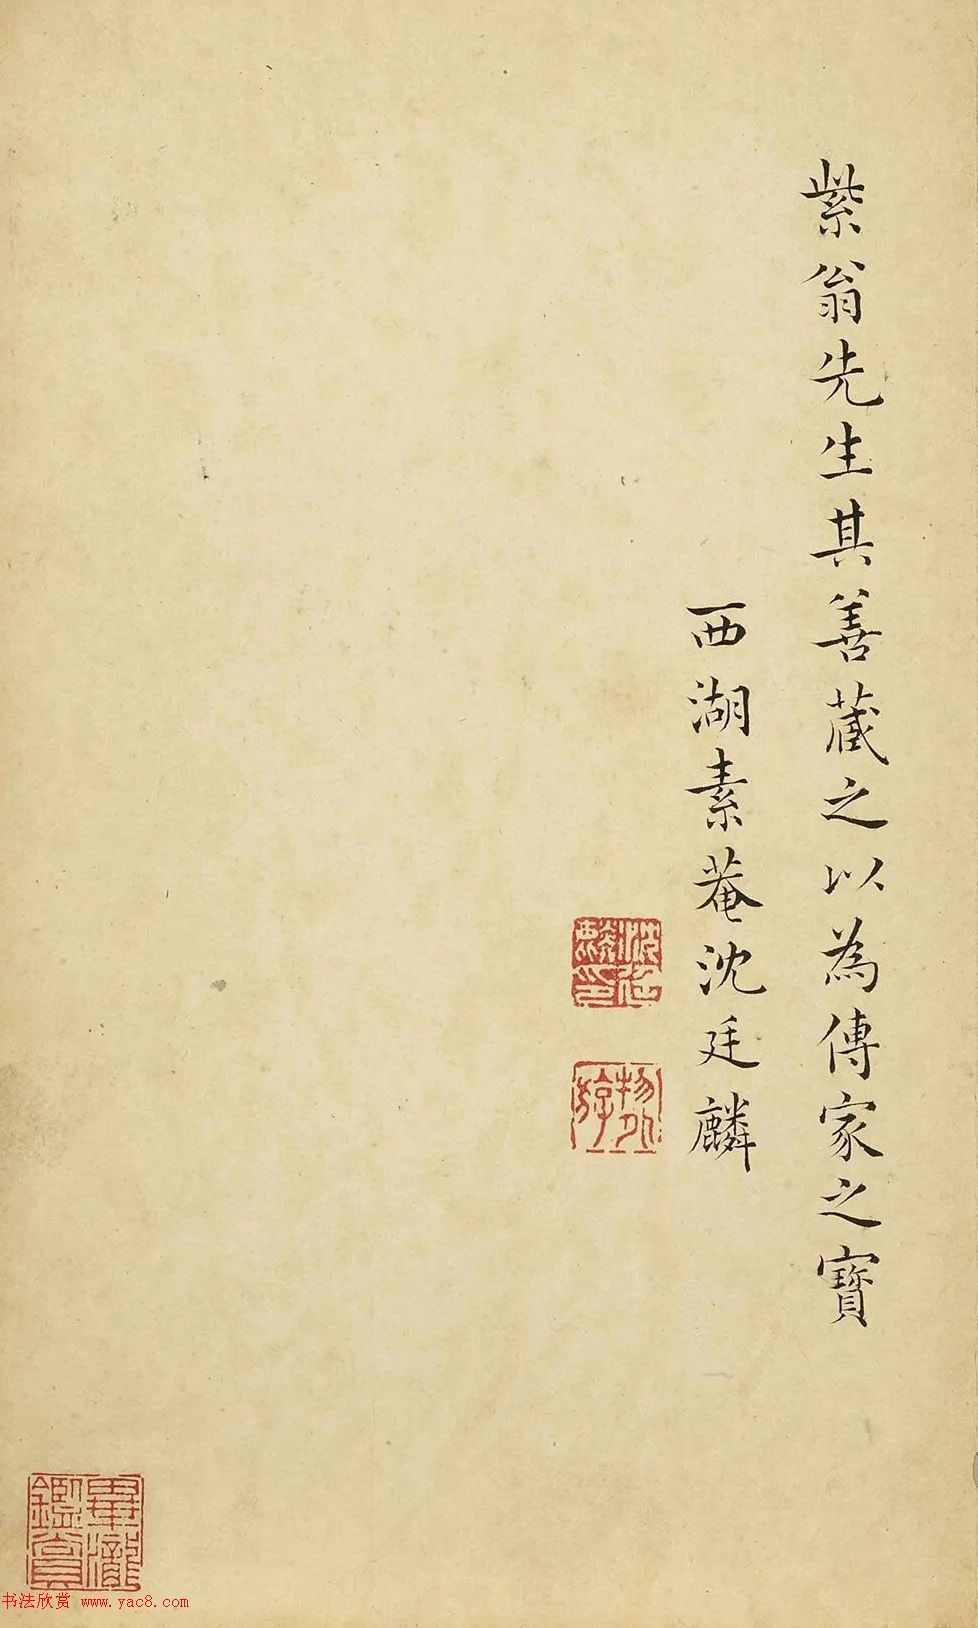 紫翁先生其善藏之以為傳家之寳
西湖素菴沈廷麟
沈廷麟印
畢瀧鑑賞
书法欣赏 www.yac8.com